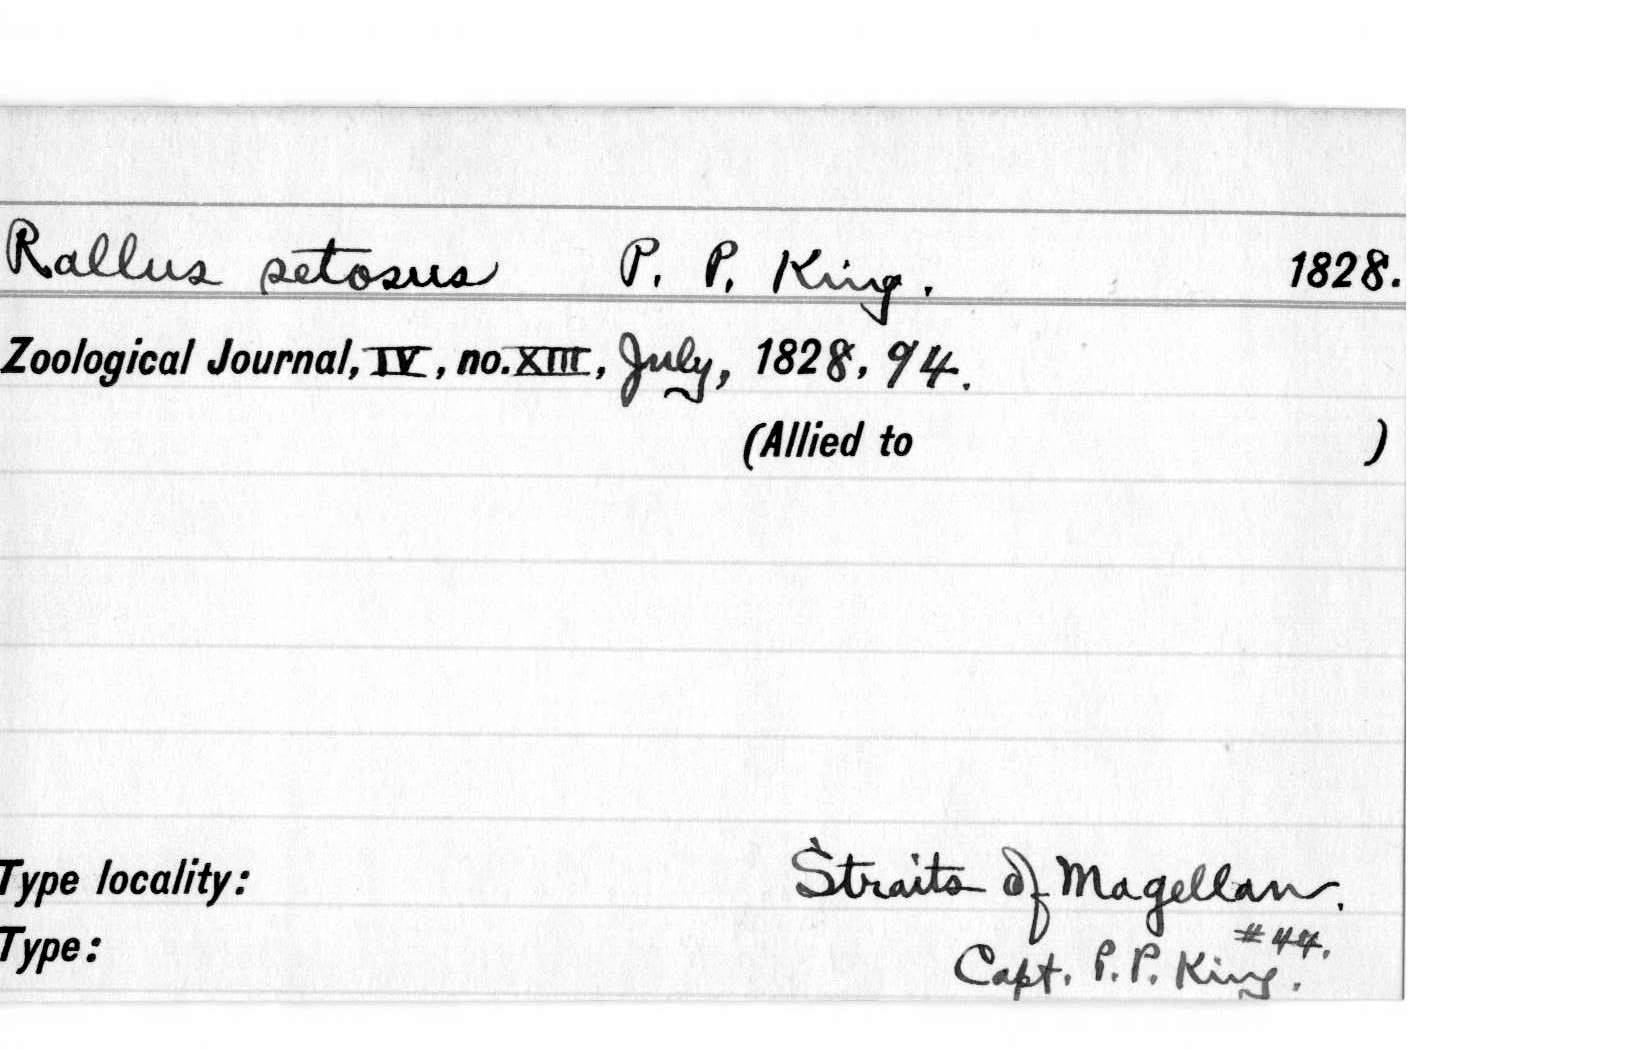 Rallus setosus P. P. King. 1828.
Zoological Journal, IV, no. XIII, July, 1828, 94.
(Allied to )
Type locality: Straits of Magellan.
#44.
Type: Capt. P. P. King.